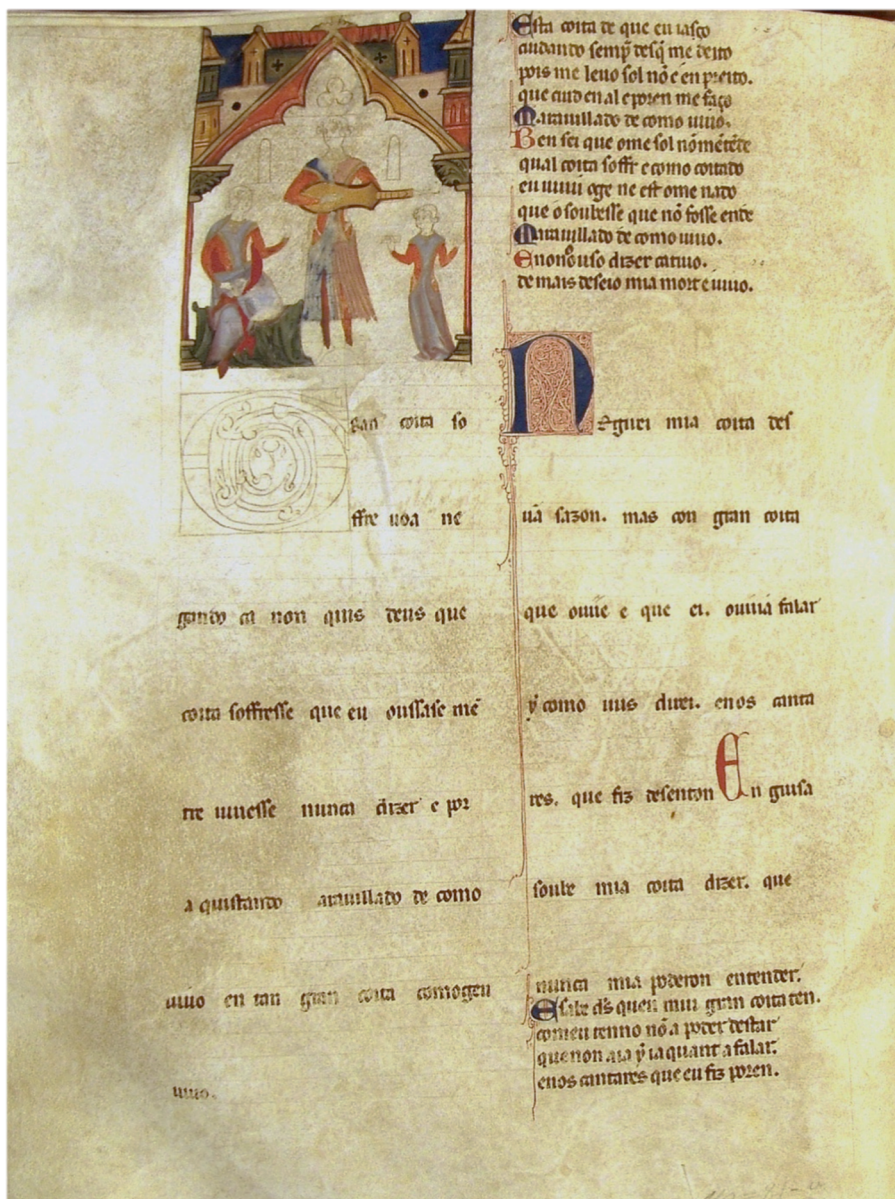 gran coita so
ffre uoa ne
gando ca non quis deus que
coita soffresse que eu oussase mẽ
tre uiuesse nunca dizer e por
a quistando arauillado de como
uiuo en tan gran coita comogeu
uiuo.
Esta coita de que eu iasço
cuidando semp̃ desq̃ me deito
pois me leuo sol nõ é en preito.
que cuid en al e poren me faço
Marauillado de como uiuo.
Ben sei que ome sol nõ mẽtẽde
qual coita soffr e como coitado
eu uiui oge ne est ome nado
que o soubesse que nõ fosse ende
Marauillado de como uiuo.
E non ouso dizer catiuo.
de mais deseio mia morte uiuo.
Neguei mia coita des
uã sazon. mas con gran coita
que ouue e que ei. ouuiá falar
ẏ como uus direi. enos canta
res. que fiz desenton En guisa
soube mia coita dizer. que
nunca mia poderon entender.
E sabe d̃s quen mui gran coita ten.
com eu tenno nõ a poder destar
que non aia ẏ ia quant a falar.
enos cantares que eu fiz poren.